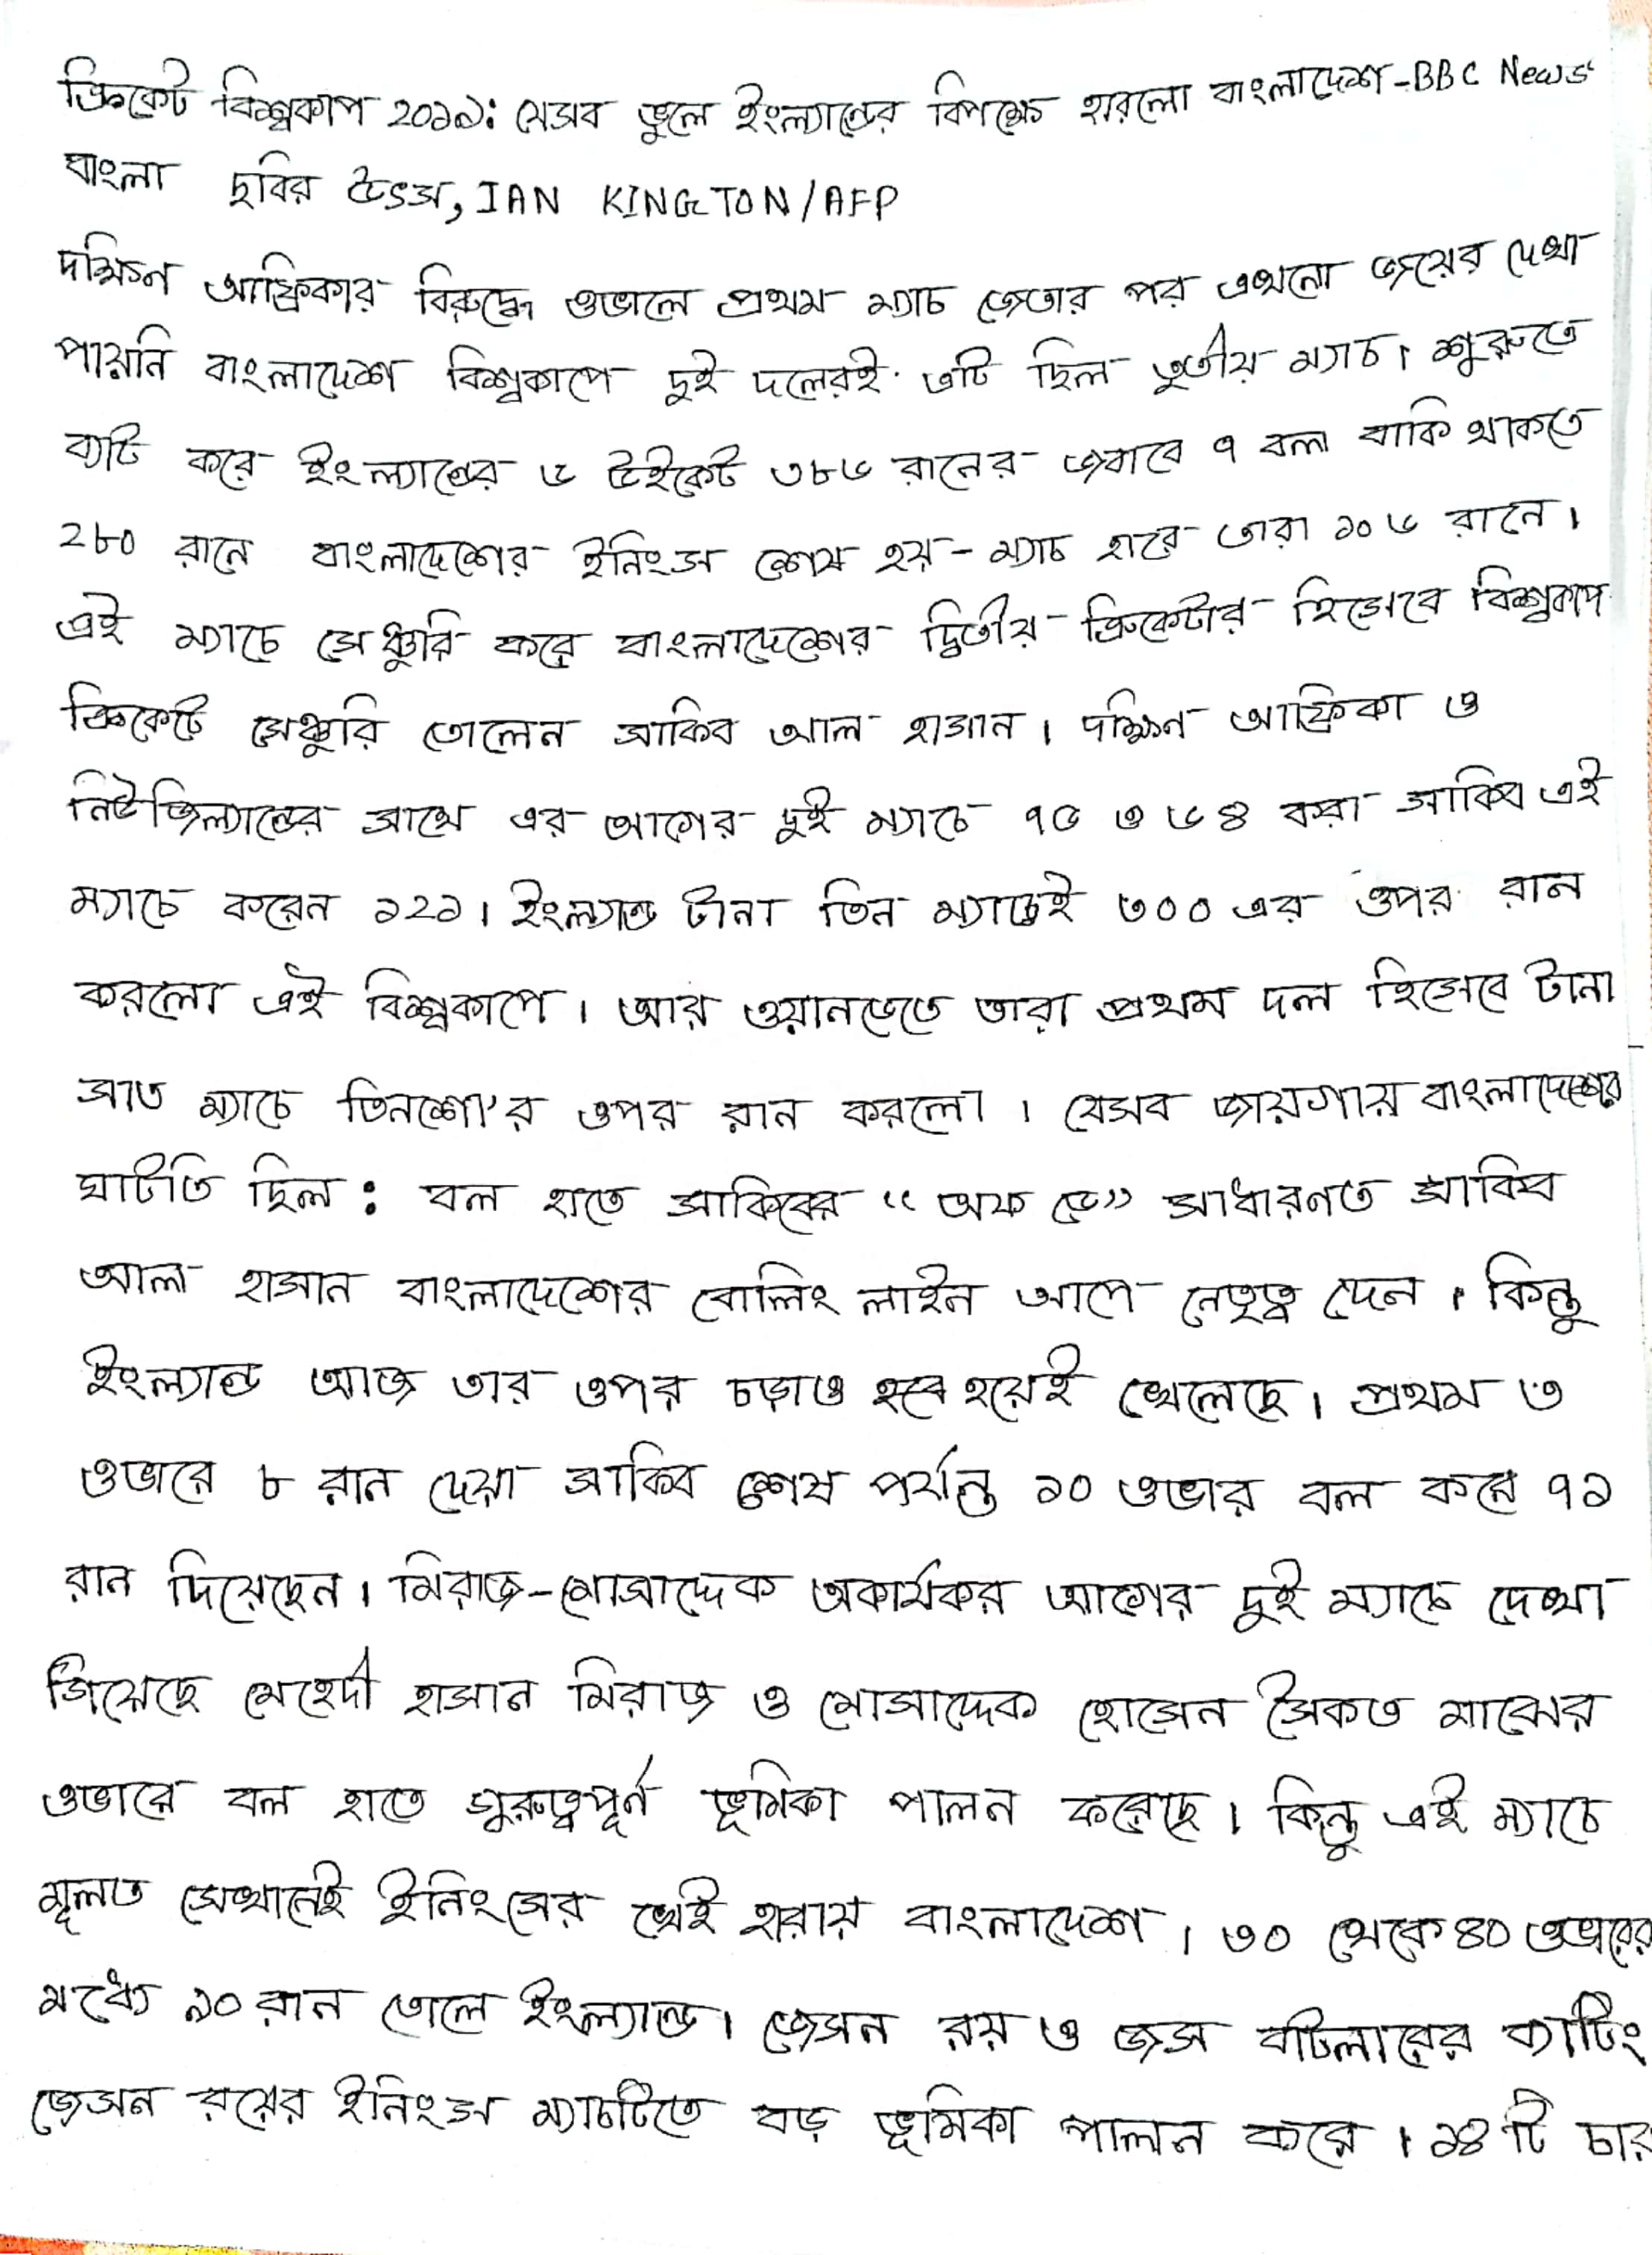 ক্রিকেট বিশ্বকাপ ২০১৯: যেসব ভুলে ইংল্যান্ডের বিপক্ষে হারলো বাংলাদেশ-BBC News
বাংলা ছবির উৎস, IAN KINGTON/AFP
দক্ষিন আফ্রিকার বিরুদ্ধে ওভালে প্রথম ম্যাচ জেতার পর এখনো জয়ের দেখা
পায়নি বাংলাদেশ বিশ্বকাপে দুই দলেরই এটি ছিল তৃতীয় ম্যাচ। শুরুতে
ব্যাট করে ইংল্যান্ডের ৬ উইকেট ৩৮৬ রানের জবাবে ৭ বল বাকি থাকতে
২৮০ রানে বাংলাদেশের ইনিংস শেষ হয় - ম্যাচ হারে তারা ১০৬ রানে।
এই ম্যাচে সেঞ্চুরি করে বাংলাদেশের দ্বিতীয় ক্রিকেটার হিসেবে বিশ্বকাপ
ক্রিকেটে সেঞ্চুরি তোলেন সাকিব আল হাসান। দক্ষিন আফ্রিকা ও
নিউজিল্যান্ডের সাথে এর আগের দুই ম্যাচে ৭৫ ও ৬৪ করা সাকিব এই
ম্যাচে করেন ১২১। ইংল্যান্ড টানা তিন ম্যাচেই ৩০০ এর ওপর রান
করলো এই বিশ্বকাপে। আর ওয়ানডেতে তারা প্রথম দল হিসেবে টানা
সাত ম্যাচে তিনশো'র ওপর রান করলো। যেসব জায়গায় বাংলাদেশের
ঘাটতি ছিল: বল হাতে সাকিবের "অফ ডে" সাধারনত সাকিব
আল হাসান বাংলাদেশের বোলিং লাইন আপে নেতৃত্ব দেন। কিন্তু
ইংল্যান্ড আজ তার ওপর চড়াও হয়েই খেলেছে। প্রথম ৩
ওভারে ৮ রান দেয়া সাকিব শেষ পর্যন্ত ১০ ওভার বল করে ৭১
রান দিয়েছেন। মিরাজ-মোসাদ্দেক অকার্যকর আগের দুই ম্যাচে দেখা
গিয়েছে মেহেদী হাসান মিরাজ ও মোসাদ্দেক হোসেন সৈকত মাঝের
ওভারে বল হাতে গুরুত্বপূর্ন ভূমিকা পালন করেছে। কিন্তু এই ম্যাচে
মূলত সেখানেই ইনিংসের খেই হারায় বাংলাদেশ। ৩০ থেকে ৪০ ওভারের
মধ্যে ৯০ রান তোলে ইংল্যান্ড। জেসন রয় ও জস বাটলারের ব্যাটিং
জেসন রয়ের ইনিংস ম্যাচটিতে বড় ভূমিকা পালন করে। ১৪ টি চার